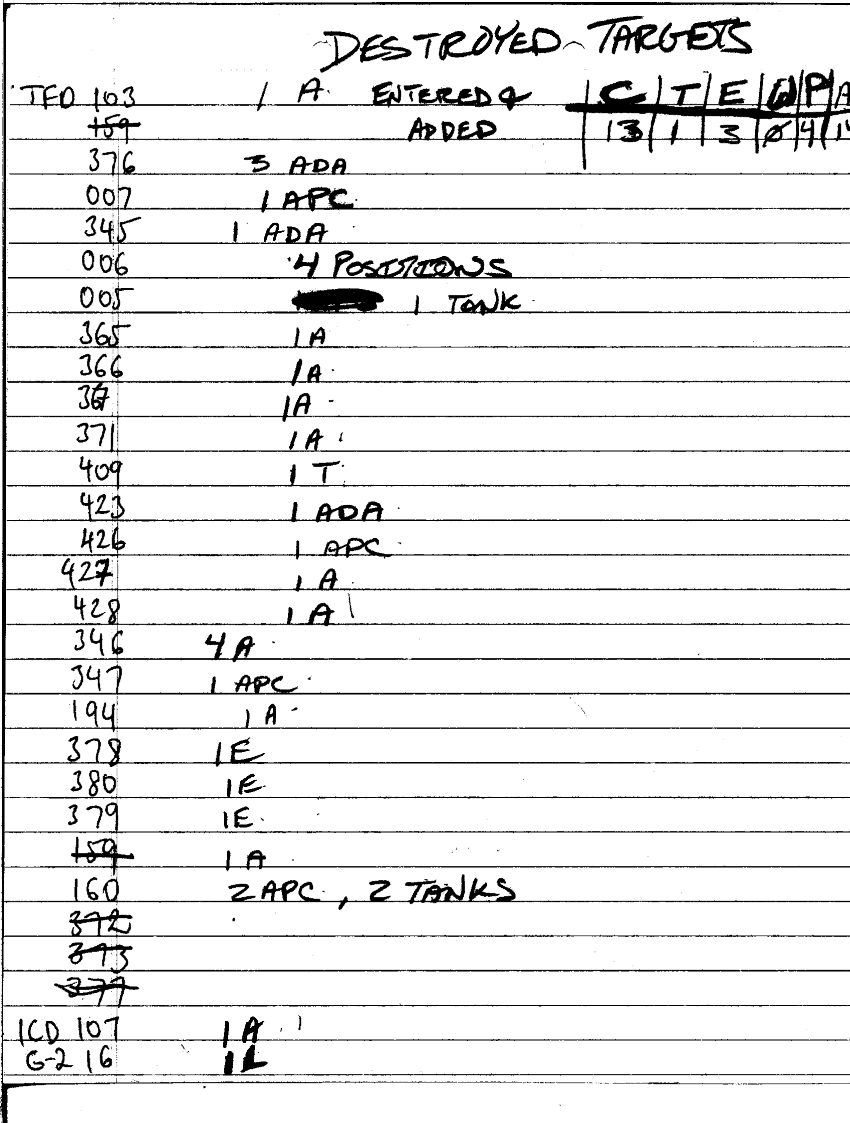 DESTROYED TARGETS
TFD 103 1 A ENTERED & ADDED
C T E P A
13 1 3 Ø 4
159
376 3 ADA
007 1 APC
345 1 ADA
006 4 POSITIONS
005 1 TANK
365 1 A
366 1 A
367 1A
371 1 A
409 1 T
423 1 ADA
426 1 APC
427 1 A
428 1 A
346 4 A
347 1 APC
194 1 A
378 1E
380 1E
379 1E
159 1 A
160 2 APC, 2 TANKS
372
373
377
1CD 107 1 A
G-2 16 1L